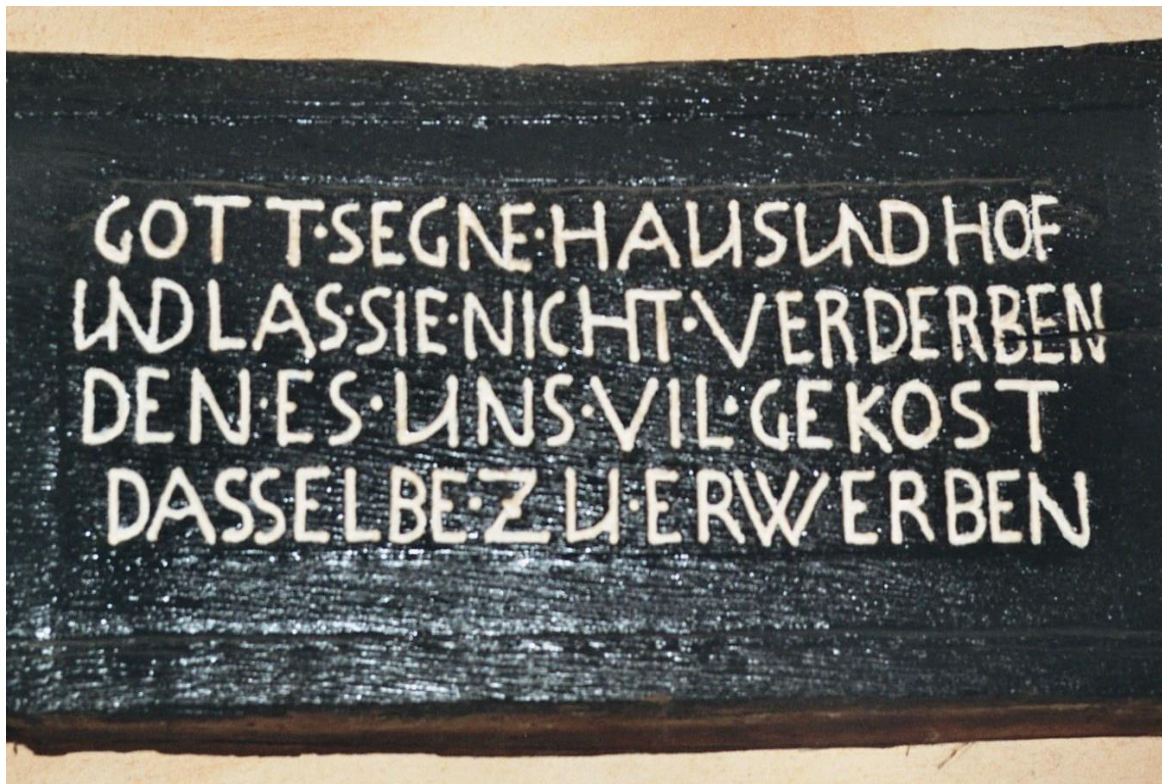 GOTT·SEGNE·HAUSUND HOF
UND LAS·SIE·NICHT·VERDERBEN
DEN·ES·UNS·VIL·GEKOST
DASSELBE·ZU·ERWERBEN